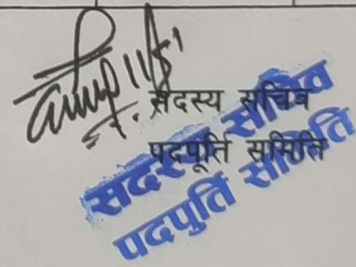 सदस्य सचिव
पदपूर्ति समिति
सदस्य सचिव
पदपुर्ति समिति